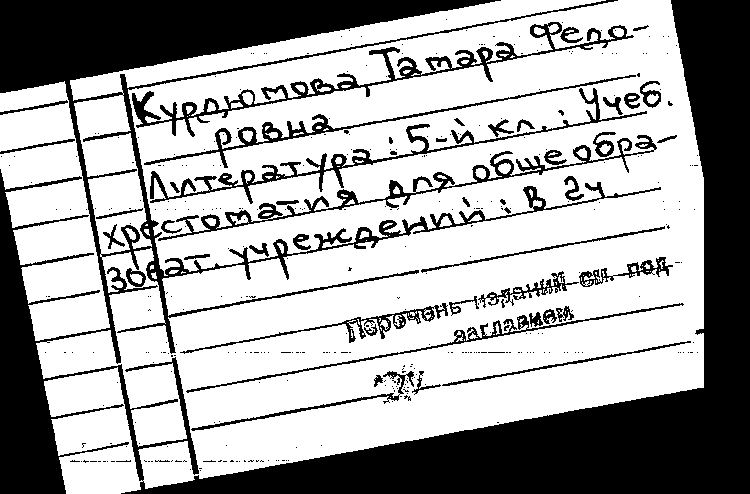 Курдюмова, Тамара Федо-
ровна.
Литература : 5-й кл. : Учеб.
хрестоматия для общеобра-
зоват. учреждений : В 2ч.
Перечень изданий см. под
заглавием